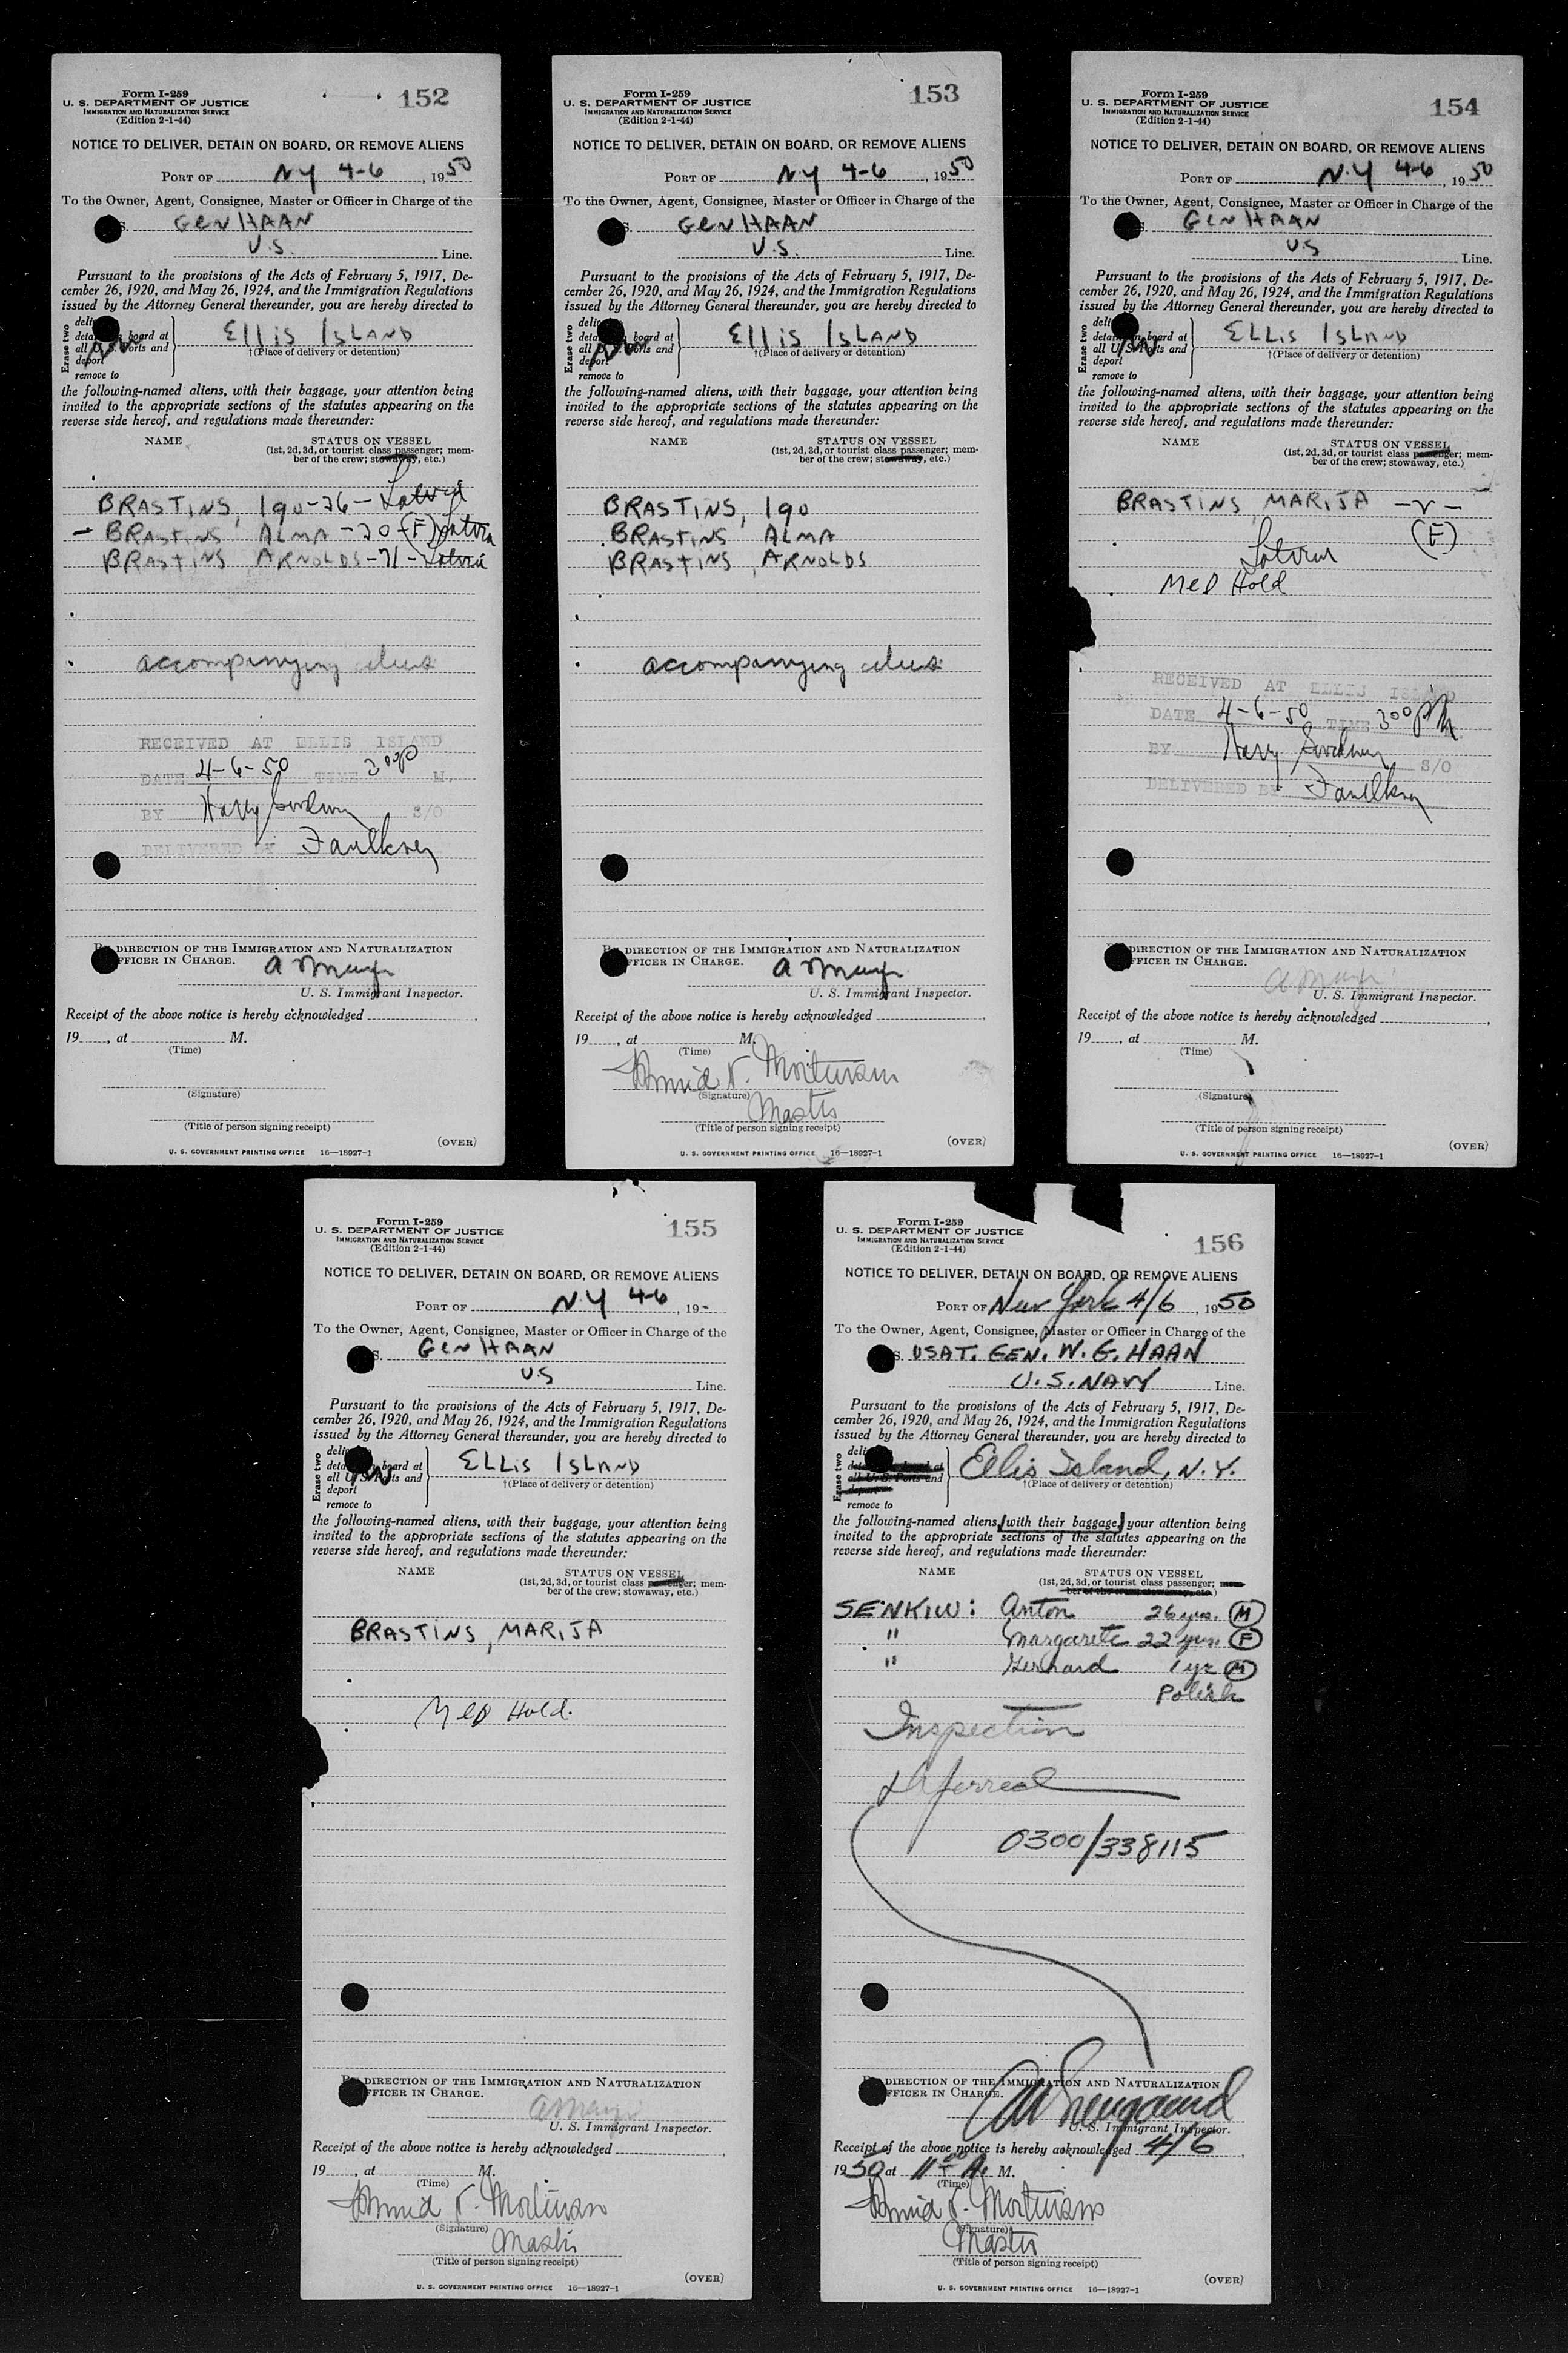 Form I-259
U. S. DEPARTMENT OF JUSTICE
IMMIGRATION AND NATURALIZATION SERVICE
(Edition 2-1-44)
152
NOTICE TO DELIVER, DETAIN ON BOARD, OR REMOVE ALIENS
PORT OF N Y 4-6, 1950
To the Owner, Agent, Consignee, Master or Officer in Charge of the
S. GEN HAAN
U.S. Line.
Pursuant to the provisions of the Acts of February 5, 1917, De-
cember 26, 1920, and May 26, 1924, and the Immigration Regulations
issued by the Attorney General thereunder, you are hereby directed to
Erase two
board at
all U. S. Ports and
deport
remove to
ELLIS ISLAND
†(Place of delivery or detention)
the following-named aliens, with their baggage, your attention being
invited to the appropriate sections of the statutes appearing on the
reverse side hereof, and regulations made thereunder:
NAME
STATUS ON VESSEL
(1st, 2d, 3d, or tourist class passenger; mem-
ber of the crew; stowaway, etc.)
BRASTINS, IGO-26- Latvia
- BRASTINS ALMA -20-(F) Latvia
BRASTINS ARNOLDS-21- Latvia
accompanying aliens
RECEIVED AT ELLIS ISLAND
DATE 4-6-50 TIME M.
BY Harry S/O
DELIVERED BY Faulkner
BY DIRECTION OF THE IMMIGRATION AND NATURALIZATION
OFFICER IN CHARGE.
U. S. Immigrant Inspector.
Receipt of the above notice is hereby acknowledged
19, at M.
(Time)
(Signature)
(Title of person signing receipt)
(OVER)
U. S. GOVERNMENT PRINTING OFFICE 16—18927-1
Form I-259
U. S. DEPARTMENT OF JUSTICE
IMMIGRATION AND NATURALIZATION SERVICE
(Edition 2-1-44)
153
NOTICE TO DELIVER, DETAIN ON BOARD, OR REMOVE ALIENS
PORT OF N.Y 4-6, 1950
To the Owner, Agent, Consignee, Master or Officer in Charge of the
S. GEN HAAN
U.S. Line.
Pursuant to the provisions of the Acts of February 5, 1917, De-
cember 26, 1920, and May 26, 1924, and the Immigration Regulations
issued by the Attorney General thereunder, you are hereby directed to
Erase two
board at
all U. S. Ports and
deport
remove to
ELLIS ISLAND
†(Place of delivery or detention)
the following-named aliens, with their baggage, your attention being
invited to the appropriate sections of the statutes appearing on the
reverse side hereof, and regulations made thereunder:
NAME
STATUS ON VESSEL
(1st, 2d, 3d, or tourist class passenger; mem-
ber of the crew; stowaway, etc.)
BRASTINS, IGO
BRASTINS ALMA
BRASTINS, ARNOLDS
accompanying aliens
BY DIRECTION OF THE IMMIGRATION AND NATURALIZATION
OFFICER IN CHARGE.
U. S. Immigrant Inspector.
Receipt of the above notice is hereby acknowledged
19, at M.
(Time)
(Signature)
Master
(Title of person signing receipt)
(OVER)
U. S. GOVERNMENT PRINTING OFFICE 16—18927-1
Form I-259
U. S. DEPARTMENT OF JUSTICE
IMMIGRATION AND NATURALIZATION SERVICE
(Edition 2-1-44)
154
NOTICE TO DELIVER, DETAIN ON BOARD, OR REMOVE ALIENS
PORT OF N.Y 4-6, 1950
To the Owner, Agent, Consignee, Master or Officer in Charge of the
S. GEN HAAN
U.S Line.
Pursuant to the provisions of the Acts of February 5, 1917, De-
cember 26, 1920, and May 26, 1924, and the Immigration Regulations
issued by the Attorney General thereunder, you are hereby directed to
Erase two
board at
all U. S. Ports and
deport
remove to
ELLIS ISLAND
†(Place of delivery or detention)
the following-named aliens, with their baggage, your attention being
invited to the appropriate sections of the statutes appearing on the
reverse side hereof, and regulations made thereunder:
NAME
STATUS ON VESSEL
(1st, 2d, 3d, or tourist class passenger; mem-
ber of the crew; stowaway, etc.)
BRASTINS MARIJA
(F)
Med Hold
RECEIVED AT ELLIS ISLAND
DATE 4-6-50 TIME 3 00 PM
BY Harry S/O
DELIVERED BY Faulkner
BY DIRECTION OF THE IMMIGRATION AND NATURALIZATION
OFFICER IN CHARGE.
U. S. Immigrant Inspector.
Receipt of the above notice is hereby acknowledged
19, at M.
(Time)
(Signature)
(Title of person signing receipt)
(OVER)
U. S. GOVERNMENT PRINTING OFFICE 16—18927-1
Form I-259
U. S. DEPARTMENT OF JUSTICE
IMMIGRATION AND NATURALIZATION SERVICE
(Edition 2-1-44)
155
NOTICE TO DELIVER, DETAIN ON BOARD, OR REMOVE ALIENS
PORT OF N.Y 4-6, 19-
To the Owner, Agent, Consignee, Master or Officer in Charge of the
S. GEN HAAN
U.S Line.
Pursuant to the provisions of the Acts of February 5, 1917, De-
cember 26, 1920, and May 26, 1924, and the Immigration Regulations
issued by the Attorney General thereunder, you are hereby directed to
Erase two
board at
all U. S. Ports and
deport
remove to
ELLIS ISLAND
†(Place of delivery or detention)
the following-named aliens, with their baggage, your attention being
invited to the appropriate sections of the statutes appearing on the
reverse side hereof, and regulations made thereunder:
NAME
STATUS ON VESSEL
(1st, 2d, 3d, or tourist class passenger; mem-
ber of the crew; stowaway, etc.)
BRASTINS, MARIJA
Med Hold.
BY DIRECTION OF THE IMMIGRATION AND NATURALIZATION
OFFICER IN CHARGE.
U. S. Immigrant Inspector.
Receipt of the above notice is hereby acknowledged
19, at M.
(Time)
(Signature)
Master
(Title of person signing receipt)
(OVER)
U. S. GOVERNMENT PRINTING OFFICE 16—18927-1
Form I-259
U. S. DEPARTMENT OF JUSTICE
IMMIGRATION AND NATURALIZATION SERVICE
(Edition 2-1-44)
156
NOTICE TO DELIVER, DETAIN ON BOARD, OR REMOVE ALIENS
PORT OF New York 4/6, 1950
To the Owner, Agent, Consignee, Master or Officer in Charge of the
S. USAT. GEN. W. G. HAAN
U.S. NAVY Line.
Pursuant to the provisions of the Acts of February 5, 1917, De-
cember 26, 1920, and May 26, 1924, and the Immigration Regulations
issued by the Attorney General thereunder, you are hereby directed to
Erase two
board at
all U. S. Ports and
deport
remove to
Ellis Island, N.Y.
†(Place of delivery or detention)
the following-named aliens, with their baggage, your attention being
invited to the appropriate sections of the statutes appearing on the
reverse side hereof, and regulations made thereunder:
NAME
STATUS ON VESSEL
(1st, 2d, 3d, or tourist class passenger; mem-
ber of the crew, stowaway, etc.)
SENKIW: Anton 26 yrs. (M)
" Margarete 22 yrs. (F)
" Gerhard 1 yr (M)
Polish
Inspection
deferred
0300/338115
BY DIRECTION OF THE IMMIGRATION AND NATURALIZATION
OFFICER IN CHARGE.
U. S. Immigrant Inspector.
Receipt of the above notice is hereby acknowledged 4/6
1950 at 11 00 A. M.
(Time)
(Signature)
Master
(Title of person signing receipt)
(OVER)
U. S. GOVERNMENT PRINTING OFFICE 16—18927-1